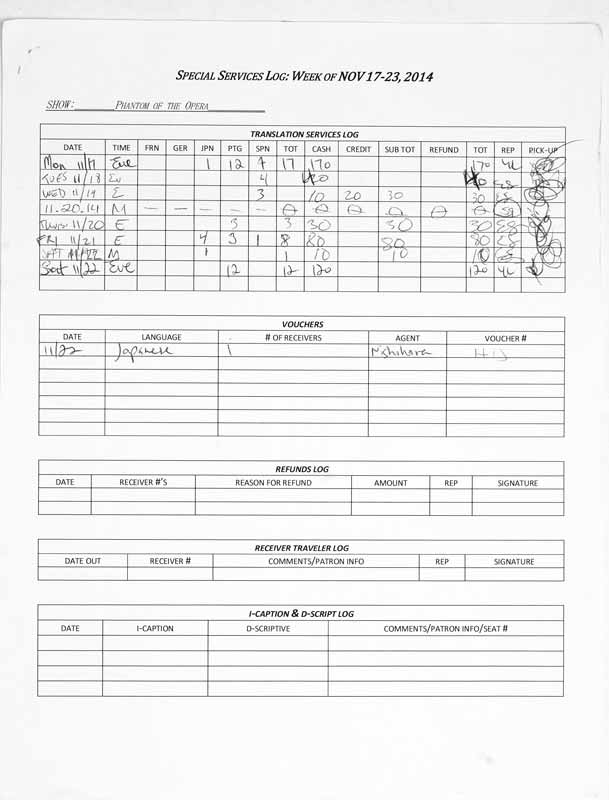 SPECIAL SERVICES LOG: WEEK OF NOV 17-23, 2014
SHOW: PHANTOM OF THE OPERA
TRANSLATION SERVICES LOG
DATE TIME FRN GER JPN PTG SPN TOT CASH CREDIT SUB TOT REFUND TOT REP PICK-UP
Mon 11/17 Eve 1 12 4 17 170 170 YL
TUES 11/18 Ev 4 40
WED 11/19 E 3 10 20 30 30 ES
11.20.14 M — — — — — 0 0 0 0 0 0 ES
THURS 11/20 E 3 3 30 30 30 ES
FRI 11/21 E 4 3 1 8 80 80 80 ES
SAT 11/22 M 1 1 10 10 10 ES
Sat 11/22 Eve 12 12 120 120 YL
VOUCHERS
DATE LANGUAGE # OF RECEIVERS AGENT VOUCHER #
11/22 Japanese 1 Nishihara HIS
REFUNDS LOG
DATE RECEIVER #'S REASON FOR REFUND AMOUNT REP SIGNATURE
RECEIVER TRAVELER LOG
DATE OUT RECEIVER # COMMENTS/PATRON INFO REP SIGNATURE
I-CAPTION & D-SCRIPT LOG
DATE I-CAPTION D-SCRIPTIVE COMMENTS/PATRON INFO/SEAT #